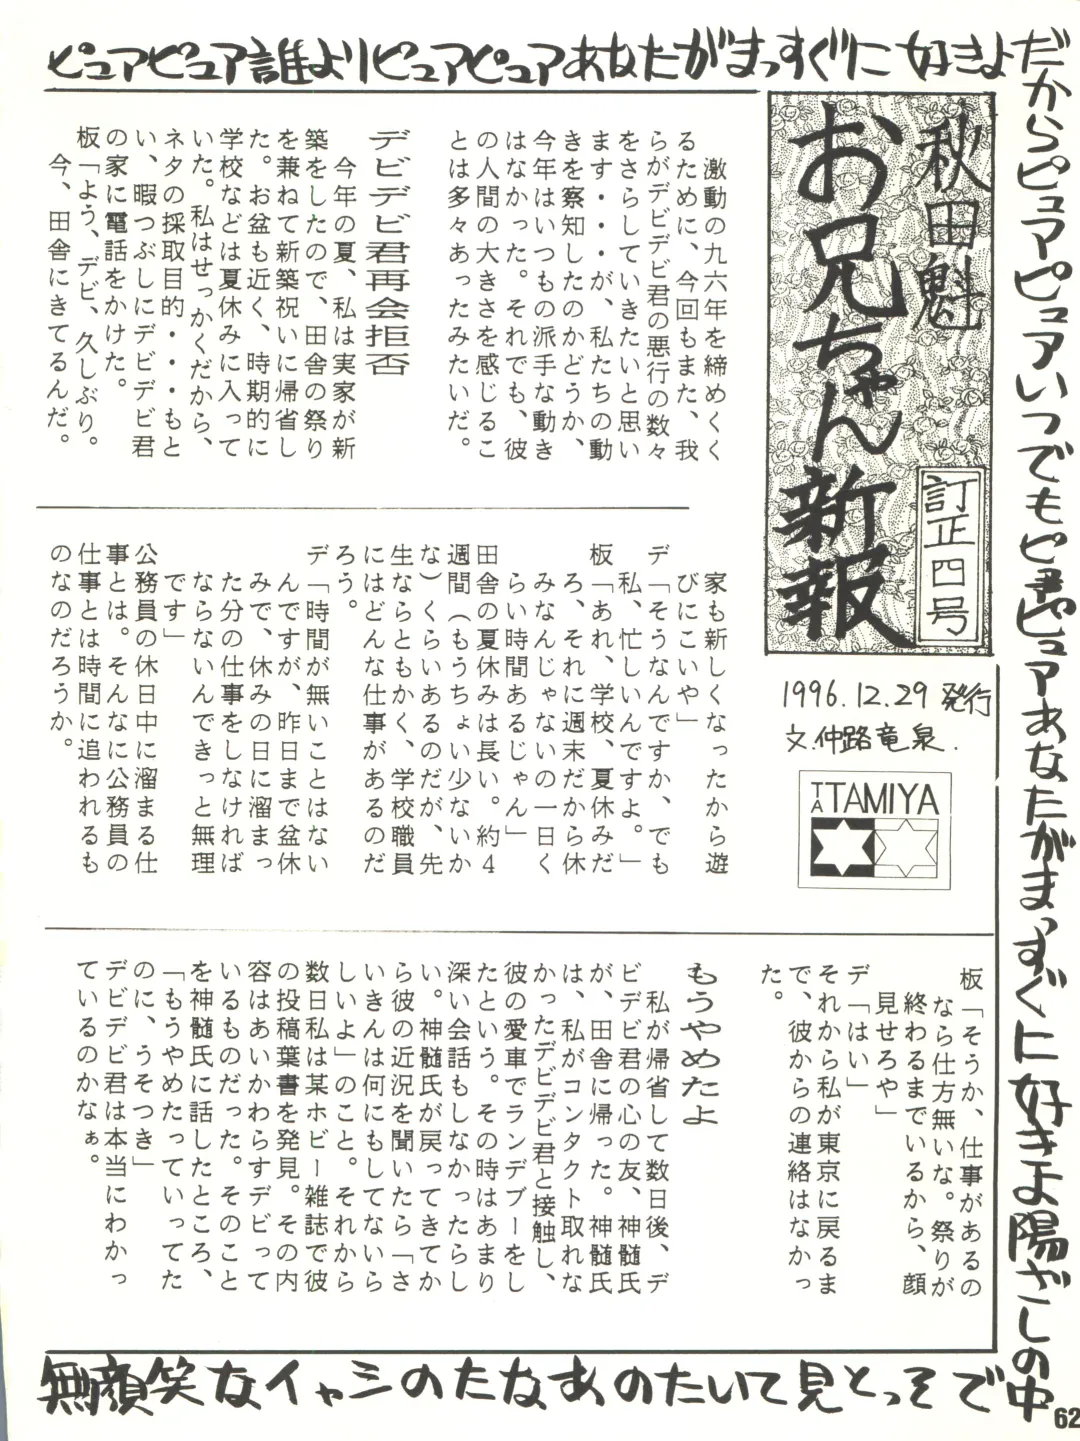 ピュアピュア誰よりピュアピュアあなたがまっすぐに好きよ
だからピュアピュアいつでもピュアピュアあなたがまっすぐに好きよ陽ざしの中
でそっと見ていたのあなたのシャイな笑顔無
秋田魁
お兄ちゃん新報
訂正四号
1996.12.29 発行
文.仲路竜泉.
TAMIYA
TAMIYA
激動の九六年を締めくく
るために、今回もまた、我
らがデビデビ君の悪行の数々
をさらしていきたいと思い
ます・・・が、私たちの動
きを察知したのかどうか、
今年はいつもの派手な動き
はなかった。それでも、彼
の人間の大きさを感じるこ
とは多々あったみたいだ。
デビデビ君再会拒否
今年の夏、私は実家が新
築をしたので、田舎の祭り
を兼ねて新築祝いに帰省し
た。お盆も近く、時期的に
学校などは夏休みに入って
いた。私はせっかくだから、
ネタの採取目的・・・もと
い、暇つぶしにデビデビ君
の家に電話をかけた。
板「よう、デビ、久しぶり。
今、田舎にきてるんだ。
家も新しくなったから遊
びにこいや」
デ「そうなんですか、でも
私、忙しいんですよ。」
板「あれ、学校、夏休みだ
ろ、それに週末だから休
みなんじゃないの一日く
らい時間あるじゃん」
田舎の夏休みは長い。約4
週間(もうちょい少ないか
な)くらいあるのだが、先
生ならともかく、学校職員
にはどんな仕事があるのだ
ろう。
デ「時間が無いことはない
んですが、昨日まで盆休
みで、休みの日に溜まっ
た分の仕事をしなければ
ならないんできっと無理
です」
公務員の休日中に溜まる仕
事とは。そんなに公務員の
仕事とは時間に追われるも
のなのだろうか。
板「そうか、仕事があるの
なら仕方無いな。祭りが
終わるまでいるから、顔
見せろや」
デ「はい」
それから私が東京に戻るま
で、彼からの連絡はなかっ
た。
もうやめたよ
私が帰省して数日後、デ
ビデビ君の心の友、神髄氏
が、田舎に帰った。神髄氏
は、私がコンタクト取れな
かったデビデビ君と接触し、
彼の愛車でランデブーをし
たという。その時はあまり
深い会話もしなかったらし
い。神髄氏が戻ってきてか
ら彼の近況を聞いたら「さ
いきんは何にもしてないら
しいよ」のこと。それから
数日私は某ホビー雑誌で彼
の投稿葉書を発見。その内
容はあいかわらすデビって
いるものだった。そのこと
を神髄氏に話したところ、
「もうやめたっていってた
のに、うそつき」
デビデビ君は本当にわかっ
ているのかなぁ。
62